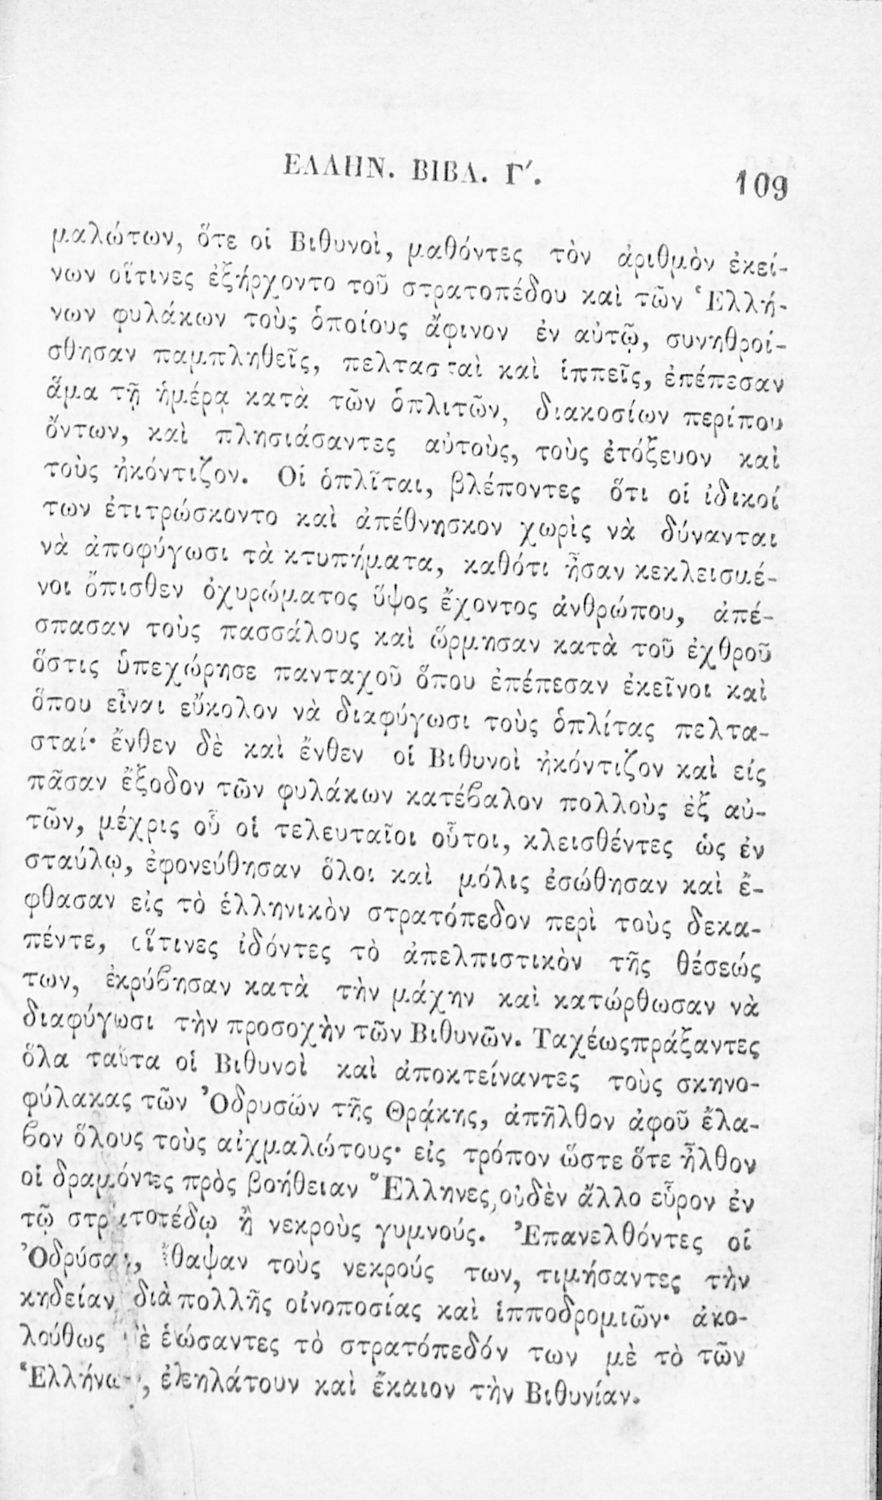 ΕΛΛΗΝ. ΒΙΒΛ. Γ΄.
109
μαλώτων, ὅτε οἱ Βιθυνοὶ, μαθόντες τὸν ἀριθμὸν ἐκεί-
νων οἵτινες ἐξήρχοντο τοῦ στρατοπέδου καὶ τῶν Ἑλλή-
νων φυλάκων τοὺς ὁποίους ἄφινον ἐν αὐτῷ, συνηθροί-
σθησαν παμπληθεῖς, πελτασταὶ καὶ ἱππεῖς, ἐπέπεσαν
ἅμα τῇ ἡμέρᾳ κατὰ τῶν ὁπλιτῶν, διακοσίων περίπου
ὄντων, καὶ πλησιάσαντες αὐτοὺς, τοὺς ἐτόξευον καὶ
τοὺς ἠκόντιζον. Οἱ ὁπλῖται, βλέποντες ὅτι οἱ ἰδικοί
των ἐτιτρώσκοντο καὶ ἀπέθνησκον χωρὶς νὰ δύνανται
νὰ ἀποφύγωσι τὰ κτυπήματα, καθότι ἦσαν κεκλεισμέ-
νοι ὄπισθεν ὀχυρώματος ὕψος ἔχοντος ἀνθρώπου, ἀπέ-
σπασαν τοὺς πασσάλους καὶ ὥρμησαν κατὰ τοῦ ἐχθροῦ
ὅστις ὑπεχώρησε πανταχοῦ ὅπου ἐπέπεσαν ἐκεῖνοι καὶ
ὅπου εἶναι εὔκολον νὰ διαφύγωσι τοὺς ὁπλίτας πελτα-
σταί· ἔνθεν δὲ καὶ ἔνθεν οἱ Βιθυνοὶ ἠκόντιζον καὶ εἰς
πᾶσαν ἔξοδον τῶν φυλάκων κατέβαλον πολλοὺς ἐξ αὐ-
τῶν, μέχρις οὗ οἱ τελευταῖοι οὗτοι, κλεισθέντες ὡς ἐν
σταύλῳ, ἐφονεύθησαν ὅλοι καὶ μόλις ἐσώθησαν καὶ ἔ-
φθασαν εἰς τὸ ἑλληνικὸν στρατόπεδον περὶ τοὺς δεκα-
πέντε, οἵτινες ἰδόντες τὸ ἀπελπιστικὸν τῆς θέσεώς
των, ἐκρύβησαν κατὰ τὴν μάχην καὶ κατώρθωσαν νὰ
διαφύγωσι τὴν προσοχὴν τῶν Βιθυνῶν. Ταχέωςπράξαντες
ὅλα ταῦτα οἱ Βιθυνοὶ καὶ ἀποκτείναντες τοὺς σκηνο-
φύλακας τῶν Ὀδρυσῶν τῆς Θρᾴκης, ἀπῆλθον ἀφοῦ ἔλα-
βον ὅλους τοὺς αἰχμαλώτους· εἰς τρόπον ὥστε ὅτε ἦλθον
οἱ δραμόντες πρὸς βοήθειαν Ἕλληνες, οὐδὲν ἄλλο εὗρον ἐν
τῷ στρατοπέδῳ ἢ νεκροὺς γυμνούς. Ἐπανελθόντες οἱ
Ὀδρύσαι, ἔθαψαν τοὺς νεκρούς των, τιμήσαντες τὴν
κηδείαν διὰ πολλῆς οἰνοποσίας καὶ ἱπποδρομιῶν· ἀκο-
λούθως δὲ ἑνώσαντες τὸ στρατόπεδόν των μὲ τὸ τῶν
Ἑλλήνων, ἐλεηλάτουν καὶ ἔκαιον τὴν Βιθυνίαν.